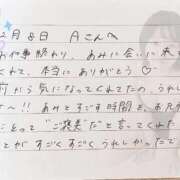 2月8日 Aさんへ
お仕事終わり、あみに会いに来
くれて、本当にありがとう♡
前から気になってくれてたの、うれし
~!! あみとすごす時間を あたか
にとって "ご褒美" だと言ってくれた
とが すごくすごく うれしかったで